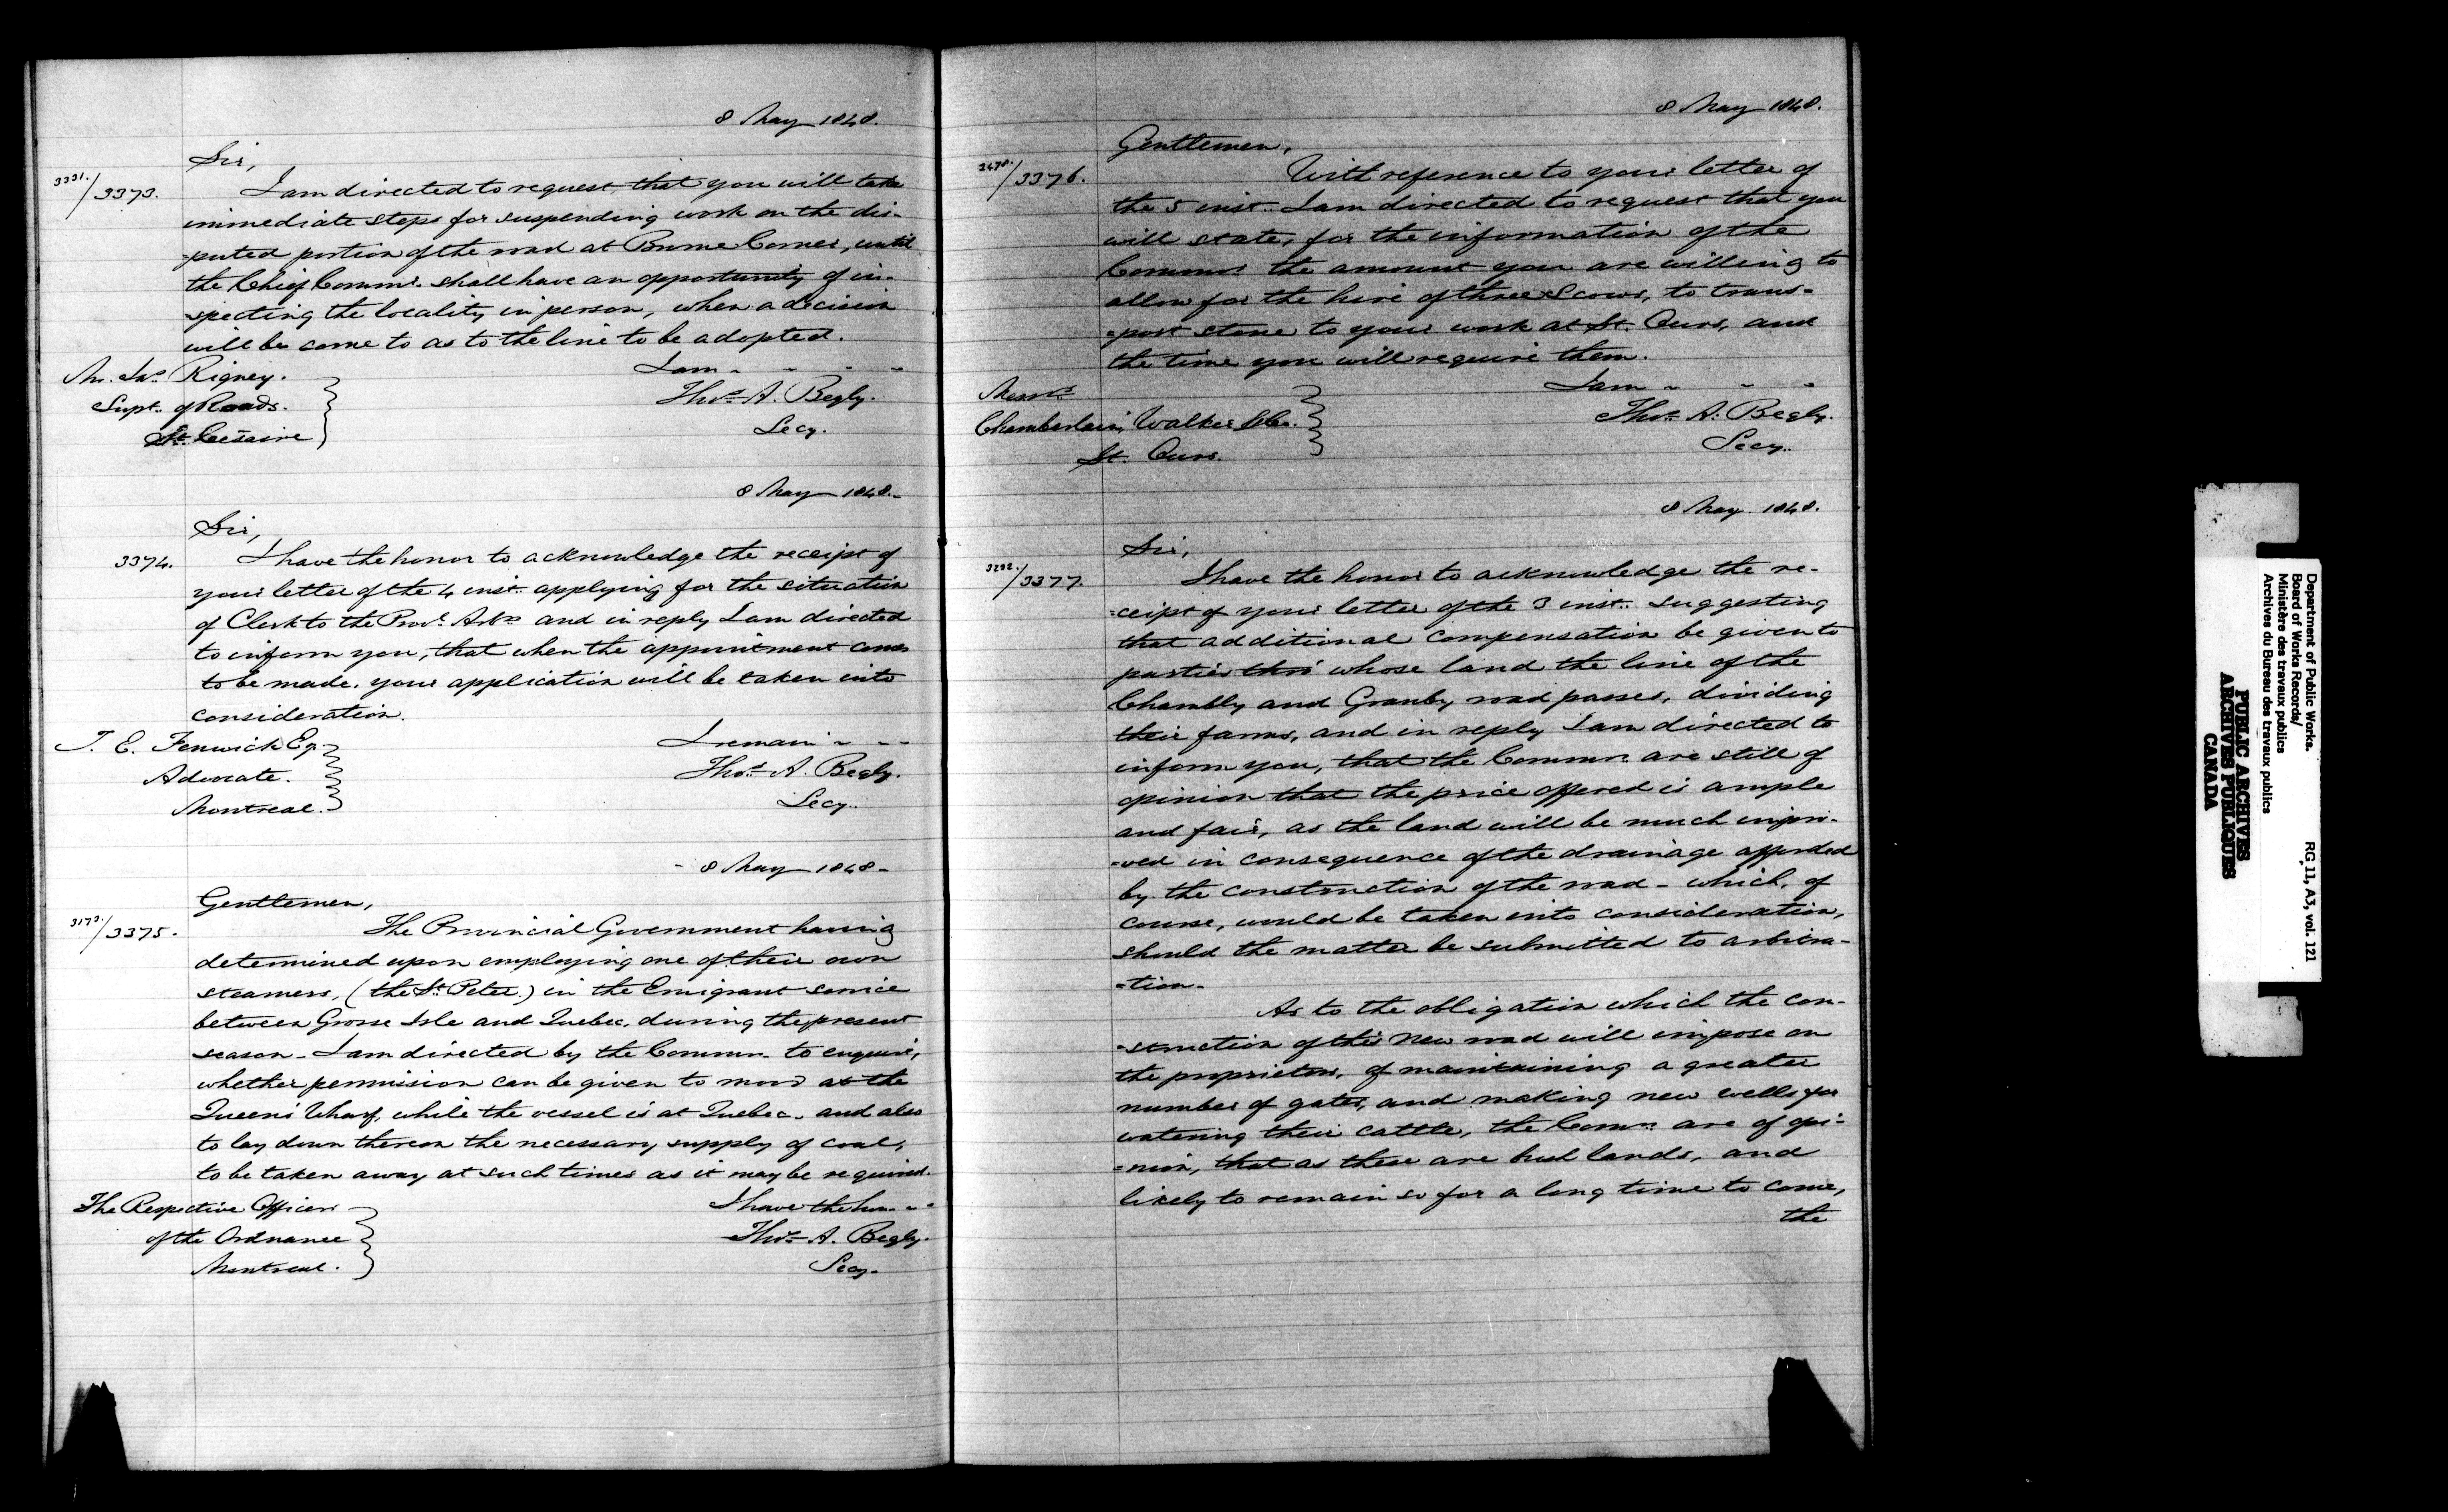 8 May 1848.
Sir,
3331./3373.
I am directed to request that you will take
immediate steps for suspending work on the dis-
-puted portion of the road at Brome Corner, until
the Chief Commr. shall have an opportunity of in-
-specting the locality in person, when a decision
will be come to as to the line to be adopted.
I am - - - -
Mr. Jas. Rigney.
Thos. A. Begly.
Supt. of Roads.
Secy.
St. Cesaire
8 May 1848.-
Sir,
3374.
I have the honor to acknowledge the receipt of
your letter of the 4 inst. applying for the situation
of Clerk to the Provl. Arbrs and in reply I am directed
to inform you, that when the appointment comes
to be made, your application will be taken into
consideration.
T. E. Fenwick Eq.
I remain - - -
Advocate.
Thos. A. Begly.
Montreal.
Secy.
- 8 May 1848-
Gentlemen,
3173./3375.
The Provincial Government having
determined upon employing one of their own
steamers, (the St. Peter.) in the Emigrant service
between Grosse Isle and Quebec, during the present
season - I am directed by the Commrs. to enquire,
whether permission can be given to moor at the
Queen's Wharf, while the vessel is at Quebec, and also
to lay down thereon the necessary supply of coal,
to be taken away at such times as it may be required.
The Respective Officers
I have the hon - -
of the Ordnance
Thos. A. Begly.
Montreal.
Secy.
8 May 1848.
Gentlemen,
2678./3376.
With reference to your letter of
the 5 inst. I am directed to request that you
will state, for the information of the
Commrs. the amount you are willing to
allow for the hire of three Scows, to trans-
-port stone to your work at St. Ours, and
the time you will require them.
I am - - -
Messrs.
Thos. A. Begly.
Chamberlain, Walker & Co.
Secy.
St. Ours.
8 May 1848.
Sir,
3292./3377.
I have the honor to acknowledge the re-
-ceipt of your letter of the 3 inst. suggesting
that additional compensation be given to
parties thro' whose land the line of the
Chambly and Granby road passes, dividing
their farms, and in reply I am directed to
inform you, that the Commrs. are still of
opinion that the price offered is ample
and fair, as the land will be much impro-
-ved in consequence of the drainage afforded
by the construction of the road - which, of
course, would be taken into consideration,
should the matter be submitted to arbitra-
-tion.
As to the obligation which the con-
-struction of this new road will impose on
the proprietors, of maintaining a greater
number of gates, and making new wells for
watering their cattle, the Commrs. are of opi-
-nion, that as these are bush lands, and
likely to remain so for a long time to come,
the
Department of Public Works.
Board of Works Records/
Ministère des travaux publics
Archives du Bureau des travaux publics
RG 11, A3, vol. 121
PUBLIC ARCHIVES
ARCHIVES PUBLIQUES
CANADA